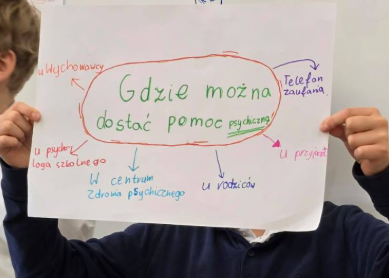 u wychowawcy
Gdzie można
dostać pomoc psychiczną?
Telefon
zaufana
u psycho
loga szkolnego
W centrum
Zdrowia psychicznego
u rodziców
u przyjaciół